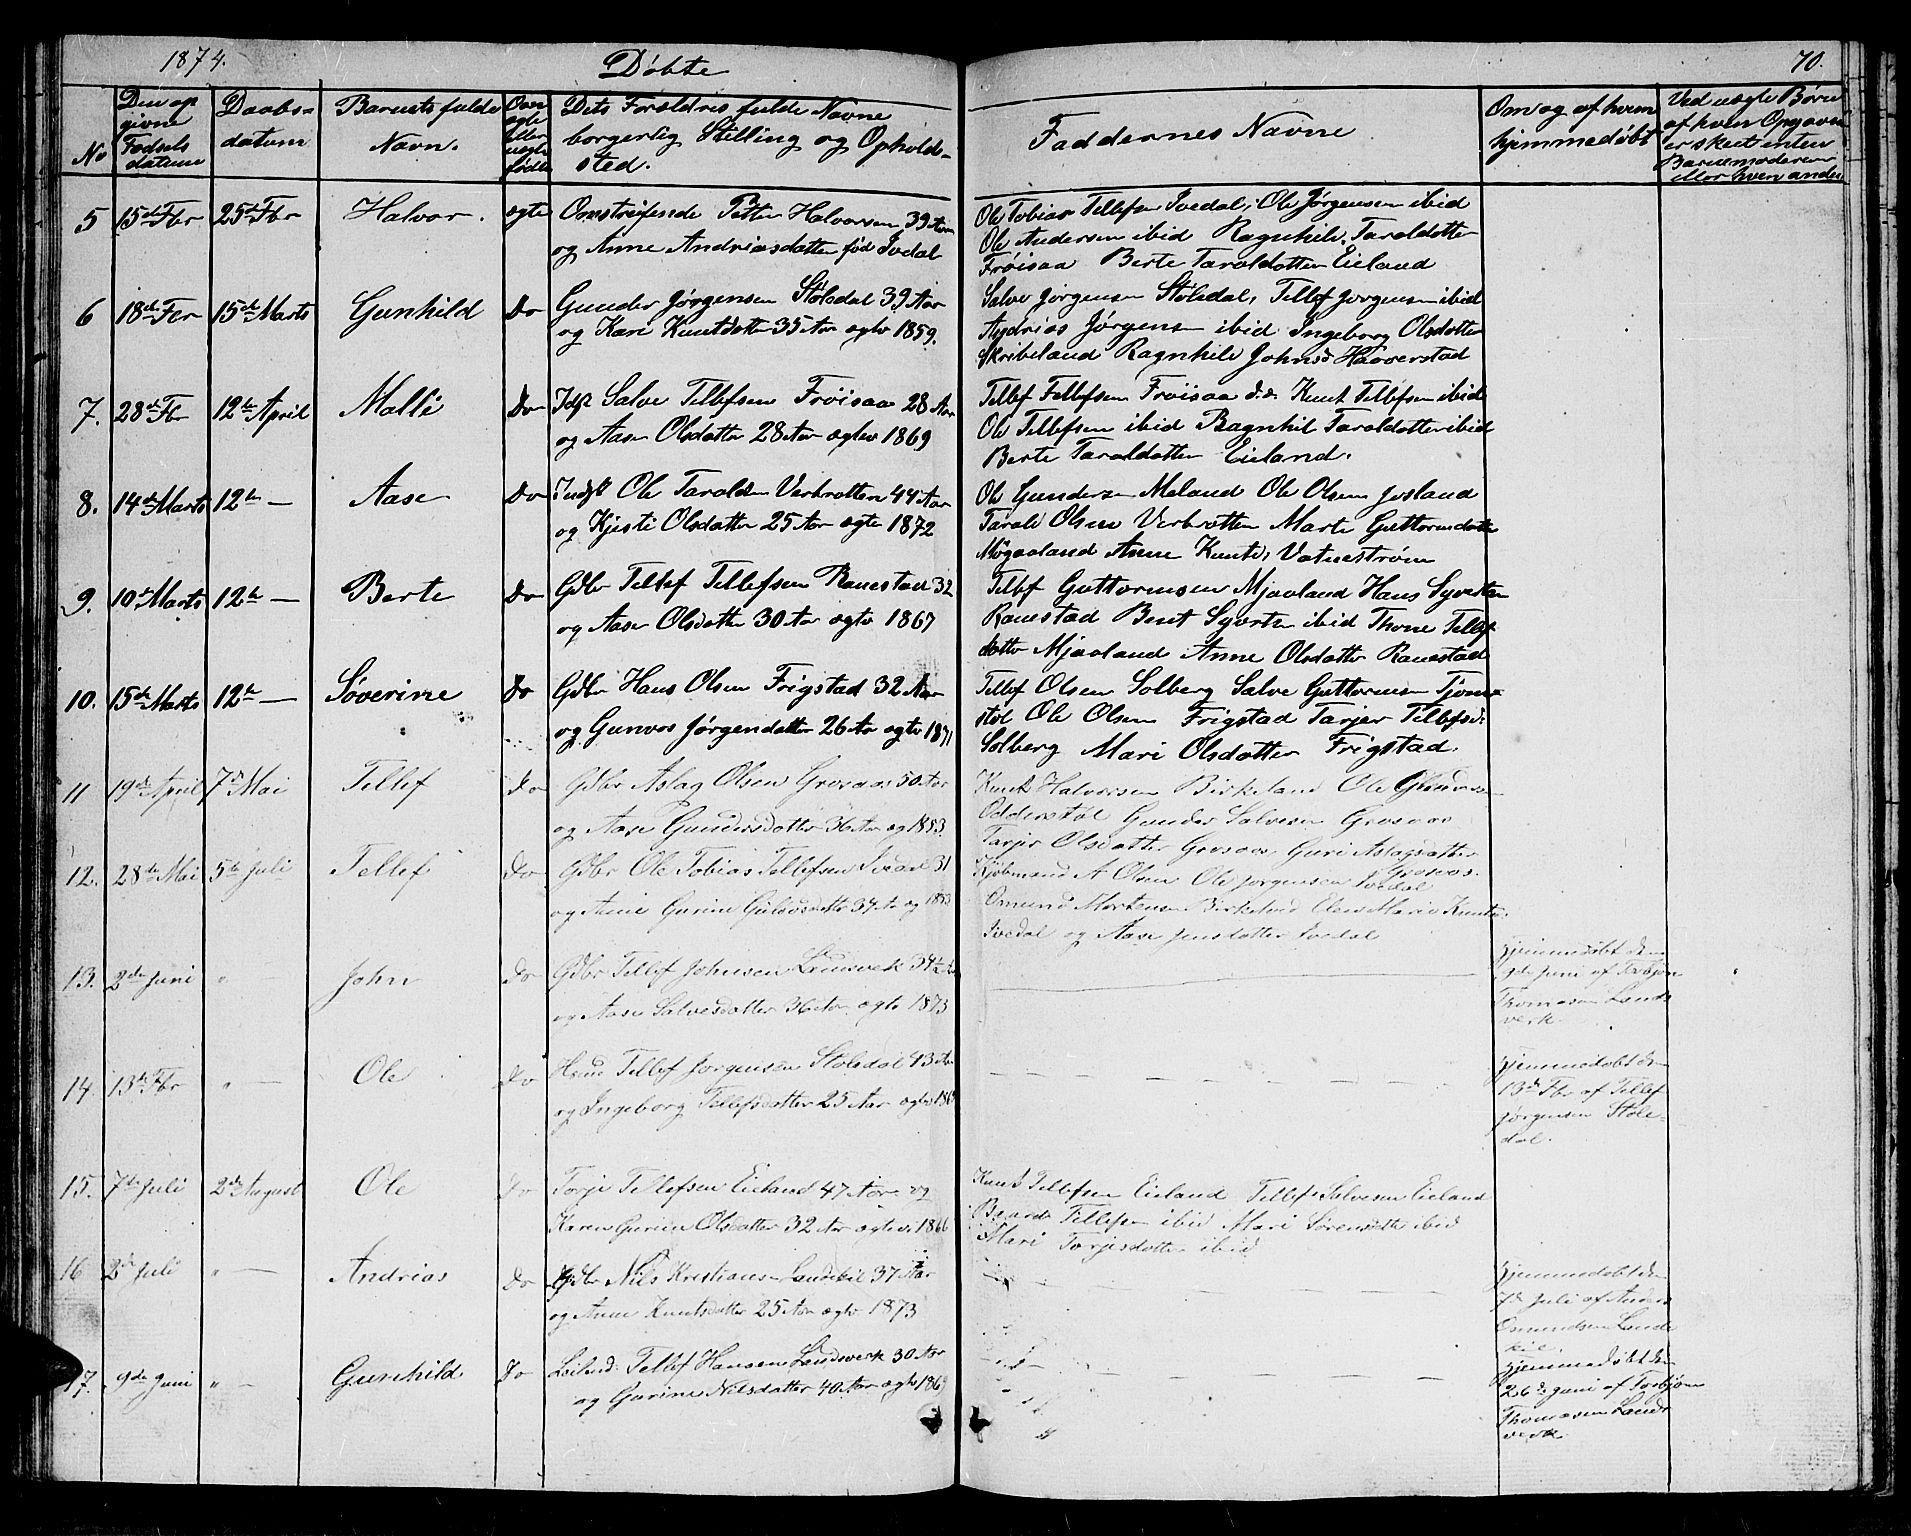 1874.
Döbte
70.
No
Den op
givne
Födsels
datum
Daabs-
datum
Barnets fulde
Navn.
Om
ægte
eller
uægte
födt
Dets Forældres fulde Navne
borgerlig Stilling og Opholds-
sted.
Faddernes Navne
Om og af hvem
hjemmedöbt
Ved uægte Börn
af hvem Opgaven
er skeet enten
Barnemoderen
eller hven anden
5 15de Fbr 25de Fbr Halvor. ægte Omstreifende Petter Halvorsen 39 Aar
og Anne Andriasdatter fød Ivedal
Ole Tobias Tellefsen Ivedal, Ole Jörgensen ibid
Ole Andersen ibid Ragnhild Taraldotter
Fröisaa Berte Taraldotter Eieland
6 18de Fbr 15de Marts Gunhild Do Gunder Jörgensen Stöledal 39 Aar
og Kari Knutsdotter 35 Aar ægtv 1859.
Salve Jörgensen Stöledal, Tellef Jorgensen ibid
Andrias Jörgensen ibid Ingeborg Olsdotter
Skribeland Ragnhild Johnsd Haaverstad
7. 28de Fbr 12te April Malli Do Idst Salve Tellefsen Fröisaa 28 Aar
og Aase Olsdatter 28 Aar ægtev 1869
Tellef Tellefsen Fröisaa d.d. Knut Tellefsen ibid
Ole Tellefsen ibid Ragnhil Taraldotter ibid
Berte Taraldotter Eieland.
8. 14de Marts 12te — Aase Do Indst Ole Taraldsen Verbrotten 44 Aar
og Kjesti Olsdatter 25 Aar ægtv 1872
Ole Gundersen Meland Ole Olsen Josland
Tarald Olsen Verbrotten Marte Guttormdotter
Anne Knutsd Vatneström
9. 10de Marts 12te — Berte Do Gdbr Tellef Tellefsen Ranestad 32
og Aase Olsdatter 30 Aar ægtv 1867
Tellef Guttormsen Mjaaland Hans Syvertsen
Ranestad Bent Syvertsen ibid Thone Tellef
datter Mjaaland Anne Olsdatter Ranestad
10. 15de Marts 12te — Söverine Do Gdbr Hans Olsen Frigstad 32 Aar
og Gunvor Jörgendatter 26 Aar ægtv 1871
Tellef Olsen Solberg Salve Guttormsen Tjöm-
stöl Ole Olsen Frigstad Tarjer Tellefsd:
Solberg Mari Olsdatter Frigstad.
11 19de April 7de Mai Tellef Do Gdbr Aslag Olsen Grosaas 50 Aar
og Aase Gundersdatter 36 Aar og 1853.
Knut Halvorsen Birkeland Ole
Odderstöl Gunder Salvesen Grosaas
Tarjer Olsdatter Grosaas Guri Aslagsdatter
Grosaas.
12. 28de Mai 5te Juli Tellef Do Gdbr Ole Tobias Tellefsen Ivedal 31
og Anne Gurine 34 Aar og
Kjöbmand A Olsen Ole Jorgensen Ivedal
Omund Mortensen Birkeland Elen Marie Knutsd.
Ivedal og Aase Jensdatter Ivedal
13. 2de Juni " John Do Gdbr Tellef Johnsen Landsverk 34½ Aar
og Aase Salvesdatter 36 Aar ægtv 1873
Hjemmedöbt den
9de Juni af Torbjörn
Thomesen Lands
verk
14. 13de Fbr " — Ole Do Tellef Jorgensen Stöledal 43 Aar
og Ingeborg Tellefsdatter 25 Aar ægtv
Hjemmedöbt den
13de Fbr af Tellef
Jörgensen Stöle-
dal.
15. 7de Juli 2de August Ole Do Torje Tellefsen Eieland 47 Aar og
Karen Gurine Olsdatter 32 Aar ægtev. 1866
Knut Tellefsen Eieland Tellef Salvesen Eieland
Tellefsen ibid Mari Sörensdtr ibid
Mari Torjesdatter ibid
16 2de Juli " — Andrias Do Gdbr Nils Kristiansen Landekil 37 Aar
og Anne Knutsdatter 25 Aar ægtv 1873
Hjemmedöbt den
7de Juli af Anders
Osmundsen Lande
kil.
17. 9de Juni " — Gunhild Do Leilnd: Tellef Hansen Landsverk 30 Aar
og Gurine Nilsdatter 40 Aar ægtv 1869
Hjemmedöbt den
26de Juni af Torbjörn
Thomesen Lands
verk